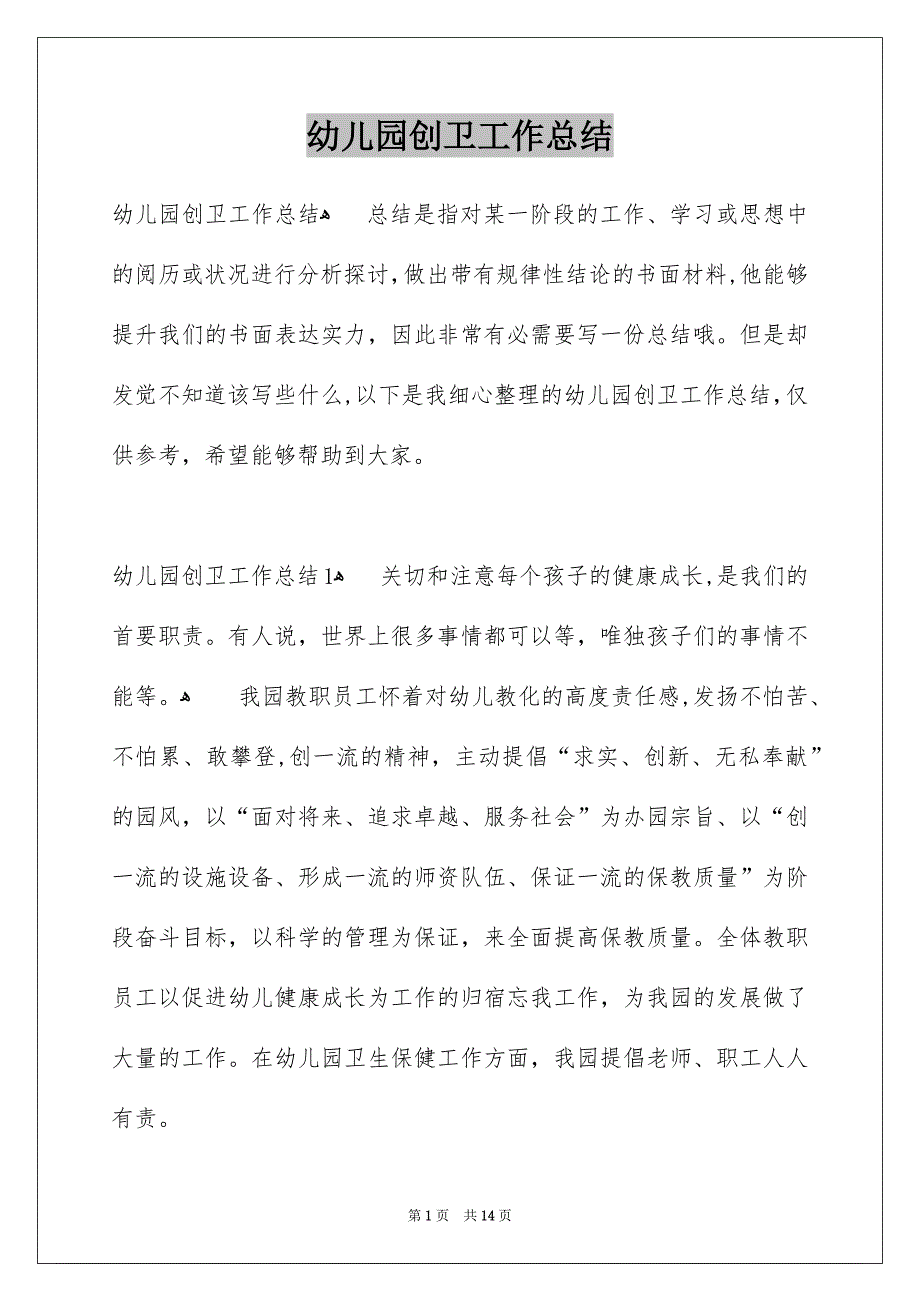 幼儿园创卫工作总结
幼儿园创卫工作总结ﻫ 总结是指对某一阶段的工作、学习或思想中
的阅历或状况进行分析探讨,做出带有规律性结论的书面材料,他能够
提升我们的书面表达实力，因此非常有必需要写一份总结哦。但是却
发觉不知道该写些什么,以下是我细心整理的幼儿园创卫工作总结,仅
供参考，希望能够帮助到大家。
幼儿园创卫工作总结1ﻫ 关切和注意每个孩子的健康成长,是我们的
首要职责。有人说，世界上很多事情都可以等，唯独孩子们的事情不
能等。ﻫ 我园教职员工怀着对幼儿教化的高度责任感,发扬不怕苦、
不怕累、敢攀登,创一流的精神，主动提倡“求实、创新、无私奉献”
的园风，以“面对将来、追求卓越、服务社会”为办园宗旨、以“创
一流的设施设备、形成一流的师资队伍、保证一流的保教质量”为阶
段奋斗目标，以科学的管理为保证，来全面提高保教质量。全体教职
员工以促进幼儿健康成长为工作的归宿忘我工作，为我园的发展做了
大量的工作。在幼儿园卫生保健工作方面，我园提倡老师、职工人人
有责。
第1页 共14页